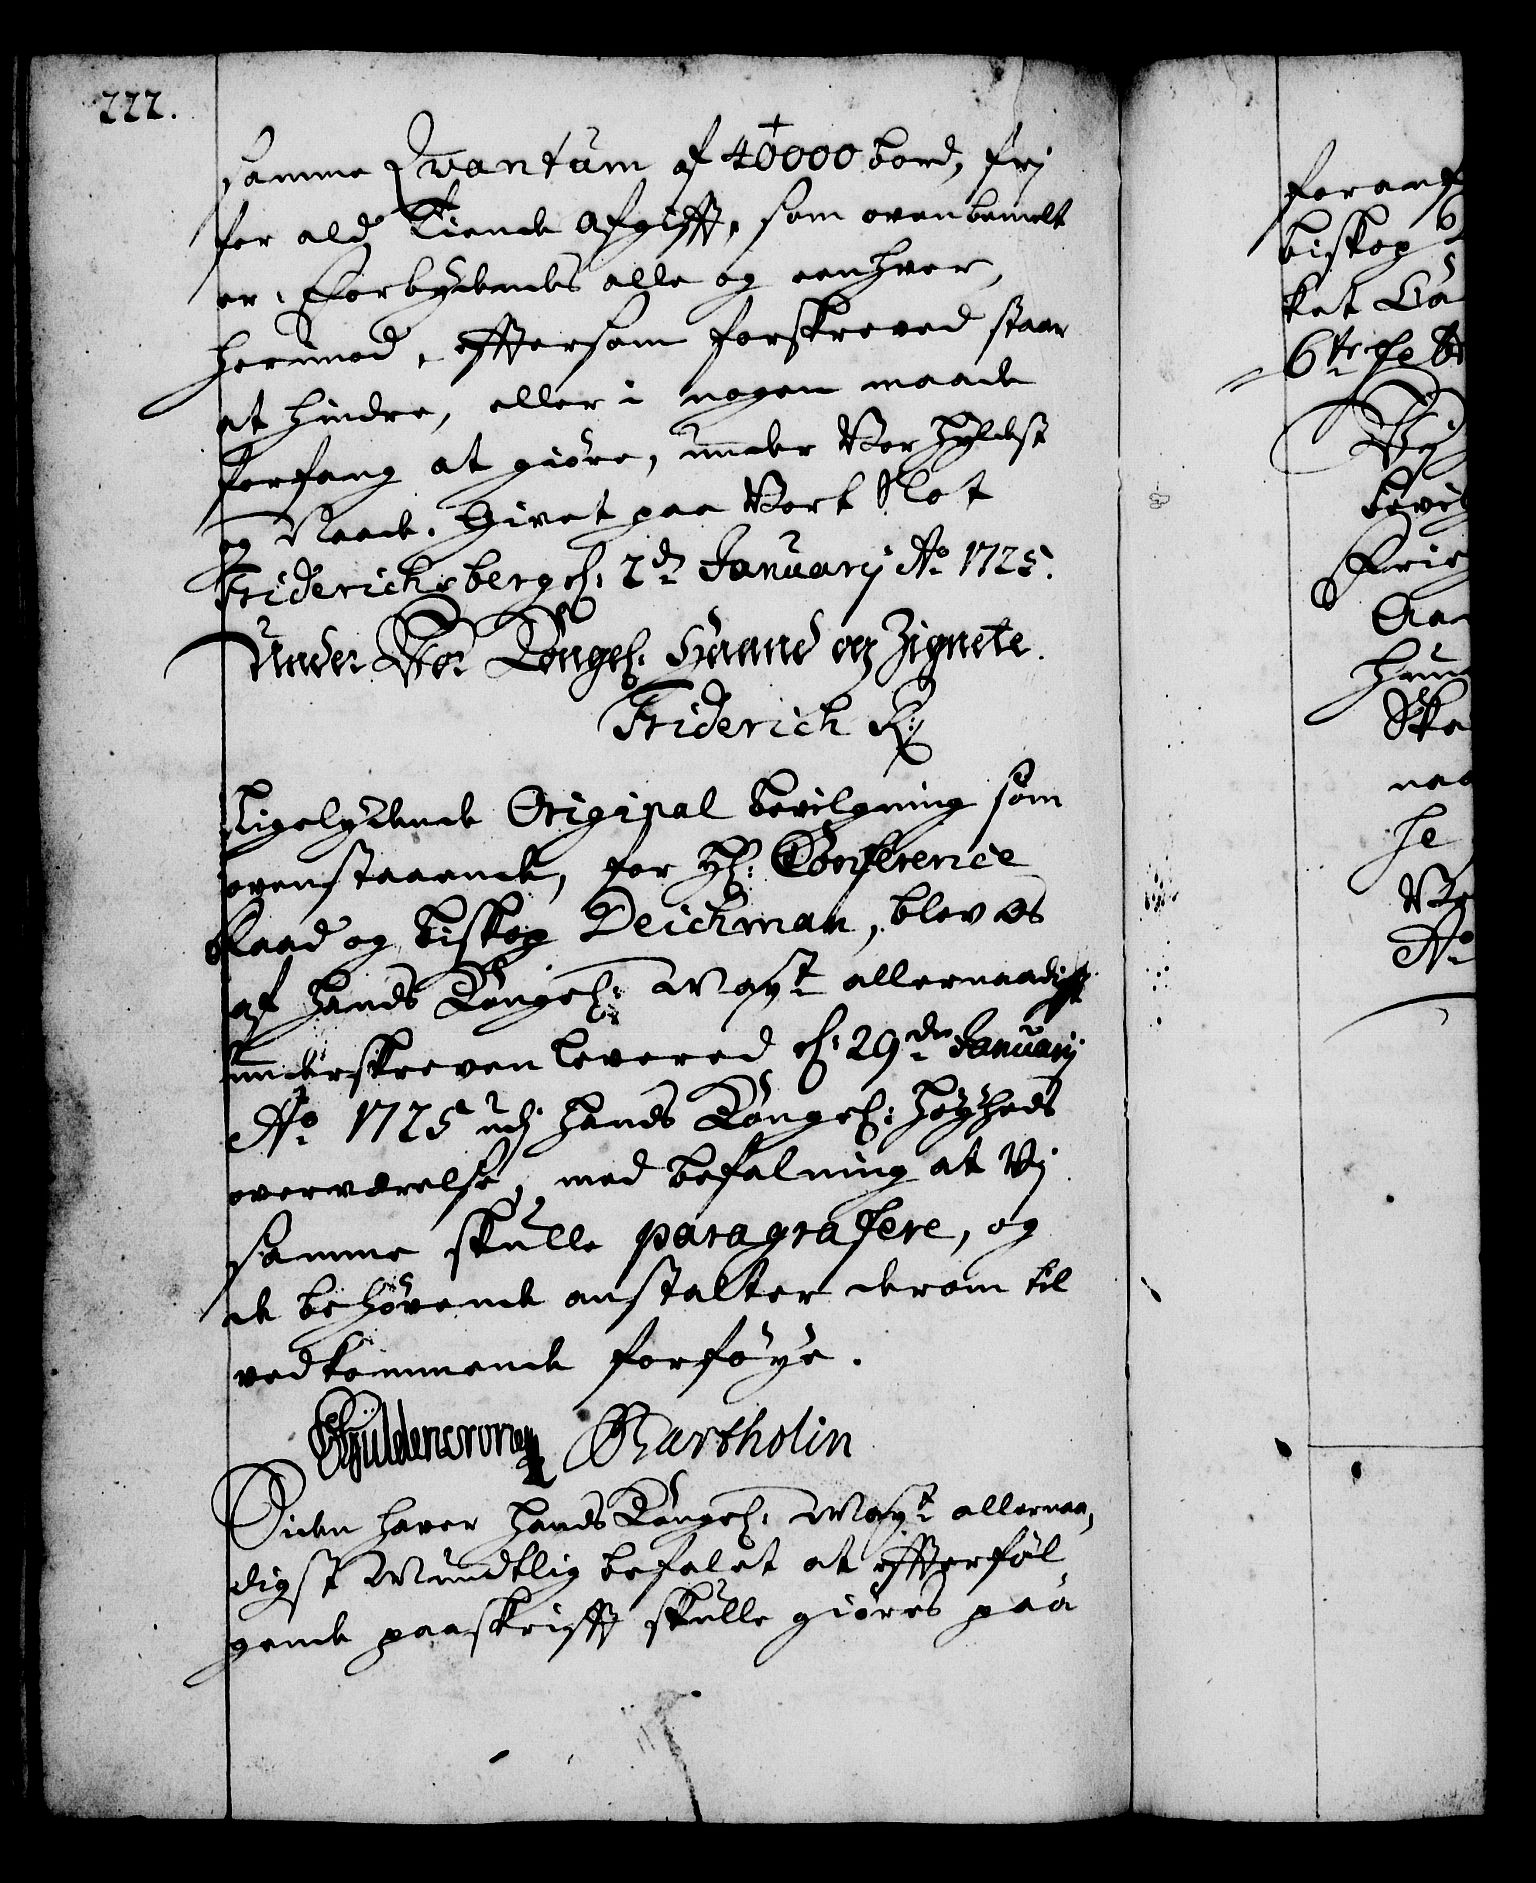 222.
samme Qvantum af 40000 bord, frj
for ald Tiende Afgifft, som ovenbemelt
er, Forbydendes alle og eenhver,
herimod, effter som forskreved staar
at hindre, eller i nogen maade
forfang at giöre, under Vor hyldest
og Naade. Givet paa Vort Slot
Friderichsberg d: 2de Januarij Ao 1725.
Under Vor Kongel: Haand og Zignete.
Friderich R:
Ligelydende Original bevilgning som
ovenstaaende, for Hr: Conference
Raad og Biskop Deichman, blev os
af Hands Kongel: Mayt allernaadigst
underskreven levered d: 29de Januarij
Ao 1725 udj Hands Kongel: Höyheds
overværelse, med befalning at Vj
samme skulle paragrafere, og
de behövende anstalter derom til
vedkommende forföye.
Gyldencrone Bartholin
Siden haver Hands Kongel: Mayt allernaa,
digst Mundtlig befalet at effterföl
gende paaskrifft skulle giöres paa
foranf
Biskop
ket
6te
Vij
bevil
Frie
Aa
Ska
naa
he
Ao